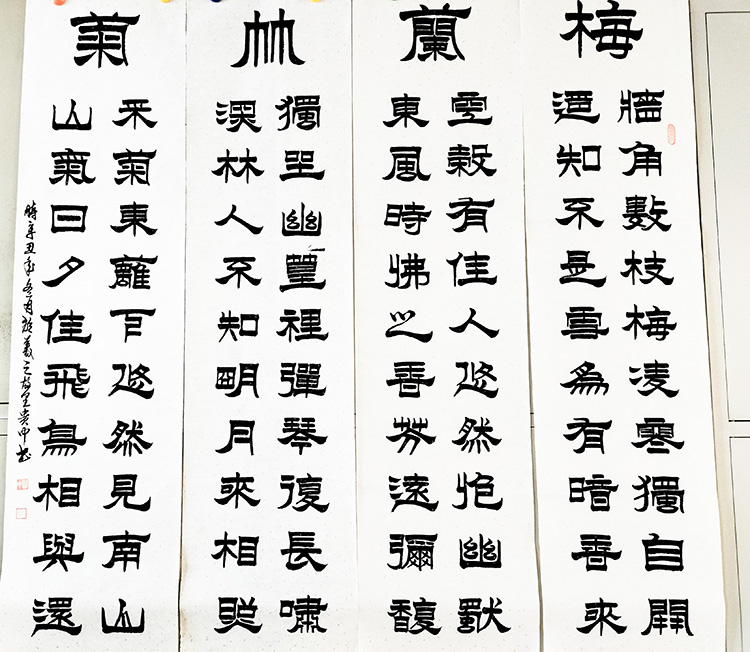 梅
牆角數枝梅凌寒獨自開
遥知不是雪為有暗香來
蘭
空榖有佳人悠然抱幽獸
東風時拂之香芬遠彌馥
竹
獨坐幽篁裡彈琴復長嘯
深林人不知明月來相照
菊
采菊東籬下悠然見南山
山氣日夕佳飛鳥相與還
時辛丑年冬月於羲之故里貴中書